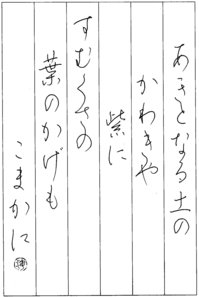 あきとなる土の
かわきや
紫に
すむくさの
葉のかげも
こまかに